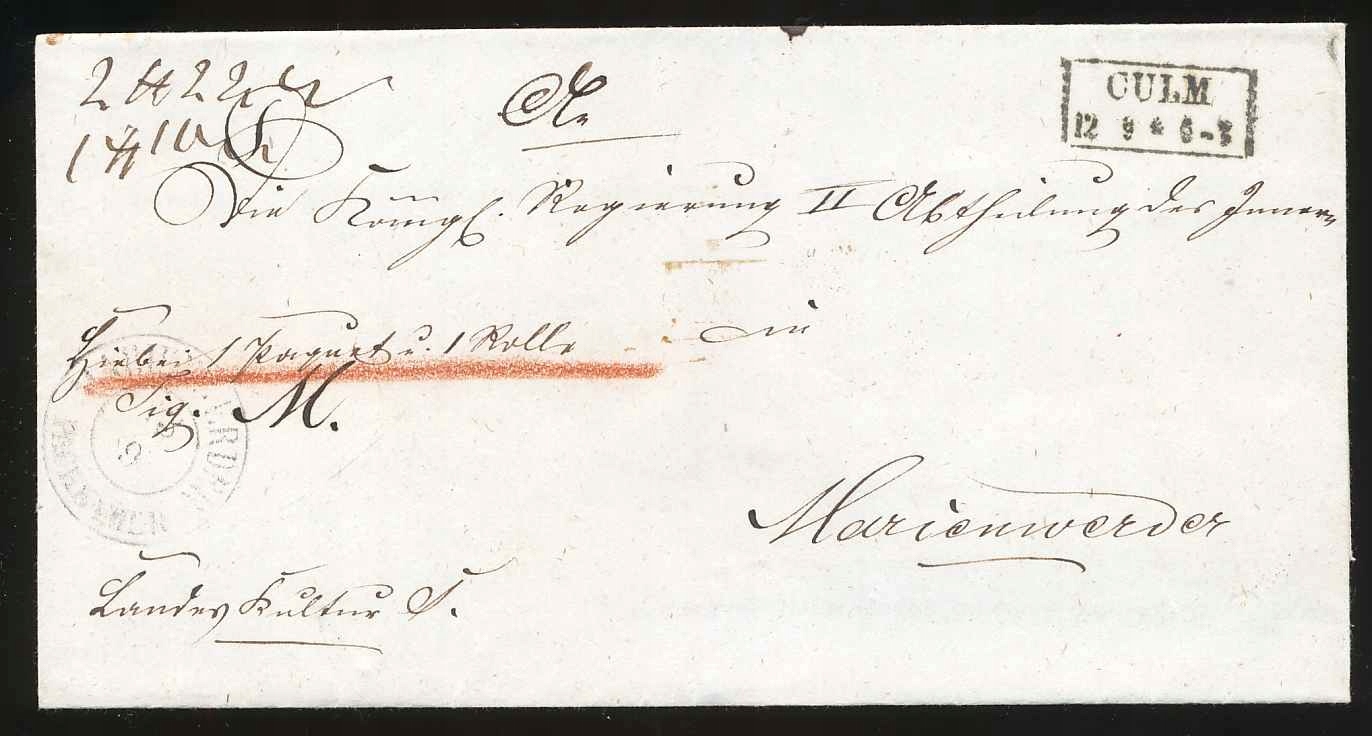 An
CULM
12 9 * 6-7
Die Königl. Regierung II Abtheilung des Innern
in
Hiebei 1 Paquet u. 1 Rolle
Sig. M.
Marienwerder
Landes Kultur S.